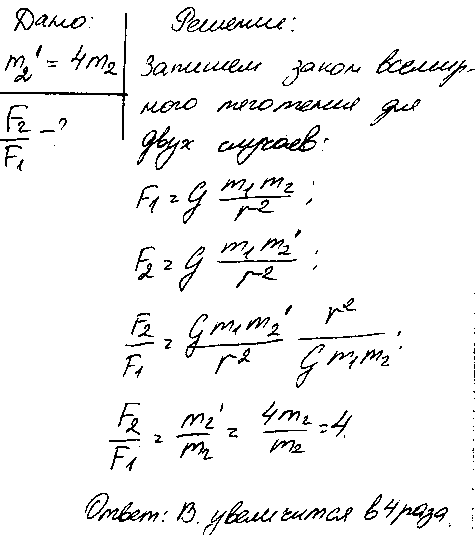 Дано:
m₂' = 4m₂
F₂/F₁ - ?
Решение:
Запишем закон всемир-
ного тяготения для
двух случаев:
F₁ = G m₁m₂/r² ;
F₂ = G m₁m₂'/r² ;
F₂/F₁ = Gm₁m₂'/r² r²/Gm₁m₂ ;
F₂/F₁ = m₂'/m₂ = 4m₂/m₂ = 4.
Ответ: В. увеличится в 4 раза.